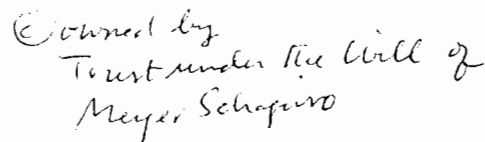 © owned by
Trust under the Will of
Meyer Schapiro